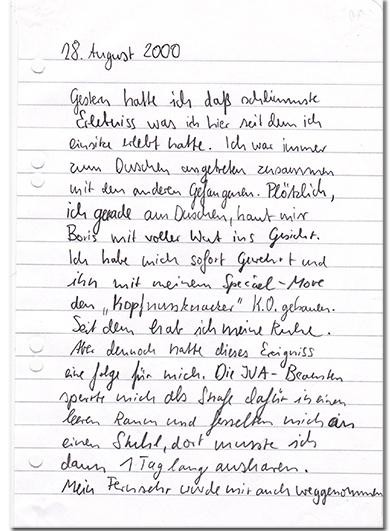 28. August 2000
Gestern hatte ich daß schlimmste
Erlebniss was ich hier seit dem ich
einsitze erlebt hatte. Ich war immer
zum Duschen angetreten zusammen
mit den anderen Gefangenen. Plötzlich,
ich gerade am Duschen, haut mir
Boris mit voller Wut ins Gesicht.
Ich habe mich sofort Gewehrt und
ihn mit meinem Special-Move
den „Kopfnussknacker" K.O. gehauen.
Seit dem hab ich meine Ruhe.
Aber dennoch hatte dieses Ereigniss
eine folge für mich. Die JVA-Beamten
sperrte mich als Strafe dafür in einen
leeren Raum und fesselten mich an
einen Stuhl, dort musste ich
dann 1 Tag lang ausharen.
Mein Fernsehr wurde mir auch weggenommen